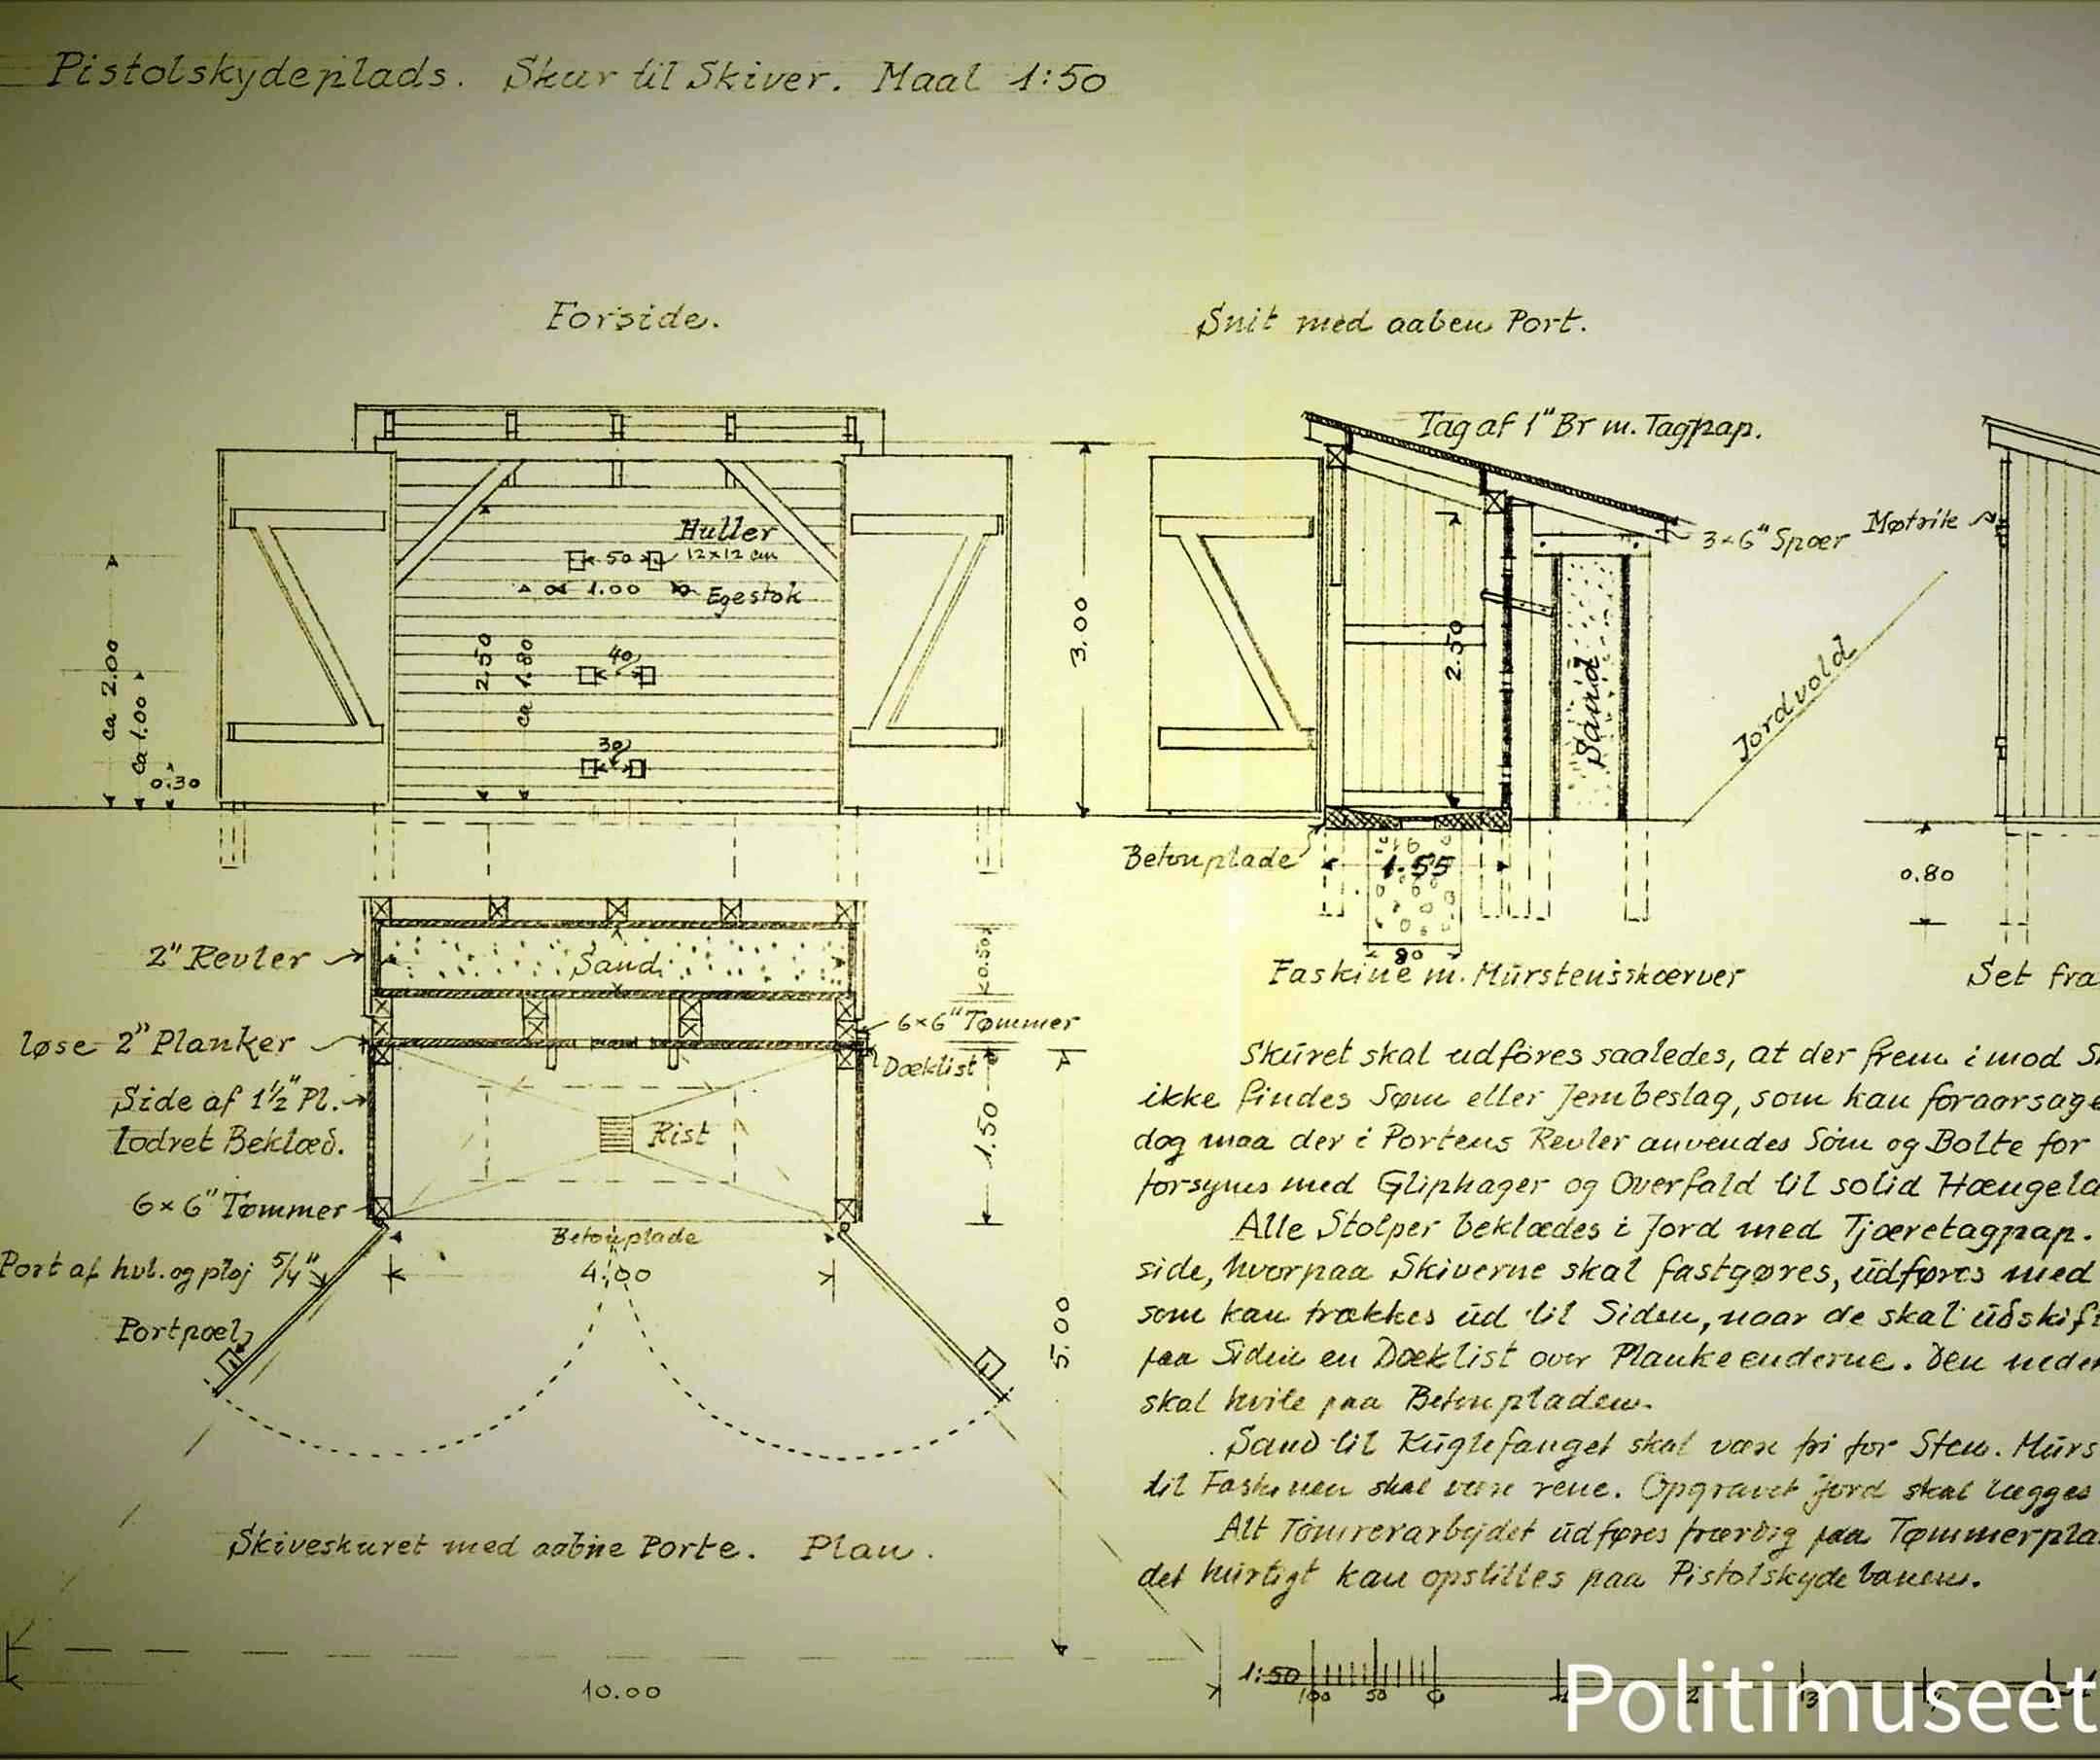 Pistolskydeplads. Skur til Skiver. Maal 1:50
Forside.
Snit med aaben Port.
Tag af 1" Br m. Tagpap.
3×6" Spær
Møtrik
Huller
12×12 cm
50
1.00
Egestok
40
30
2.50
ca 1.80
ca 2.00
ca 1.00
0.30
3.00
2.50
Sand
Jordvold
Betonplade
1.55
80
0.80
Faskine m. Mürstensskærver
Set fra
2" Revler
Sand
0.50
løse 2" Planker
6×6" Tømmer
Dæklist
Side af 1½" Pl.
lodret Beklæd.
Rist
1.50
6×6" Tømmer
Betonplade
Port af hvl. og pløj 5/4"
4.00
Portpæl
5.00
Skiveskuret med aabne Porte. Plan.
10.00
Sküret skal udföres saaledes, at der frem imod
ikke findes Søm eller Jernbeslag, som kan foraarsage
dog maa der i Portens Revler anvendes Söm og Bolte for
forsynes med Gliphager og Overfald til solid
Alle Stolper beklædes i Jord med Tjæretagpap.
side, hvorpaa Skiverne skal fastgøres, üdføres med
som kan trækkes üd til Siden, naar de skal
paa Siden en Dæklist over Plankeenderne. Den
skal hvile paa Betonpladen.
Sand til Küglefanget skal være fri for Sten.
til Faskinen skal være rene. Opgravet Jord skal lægges
Alt Tömrerarbejdet üdføres færdig paa
det hürtigt kan opstilles paa Pistolskydebanen.
1:50
100 50 0 1 2 3
Politimuseet